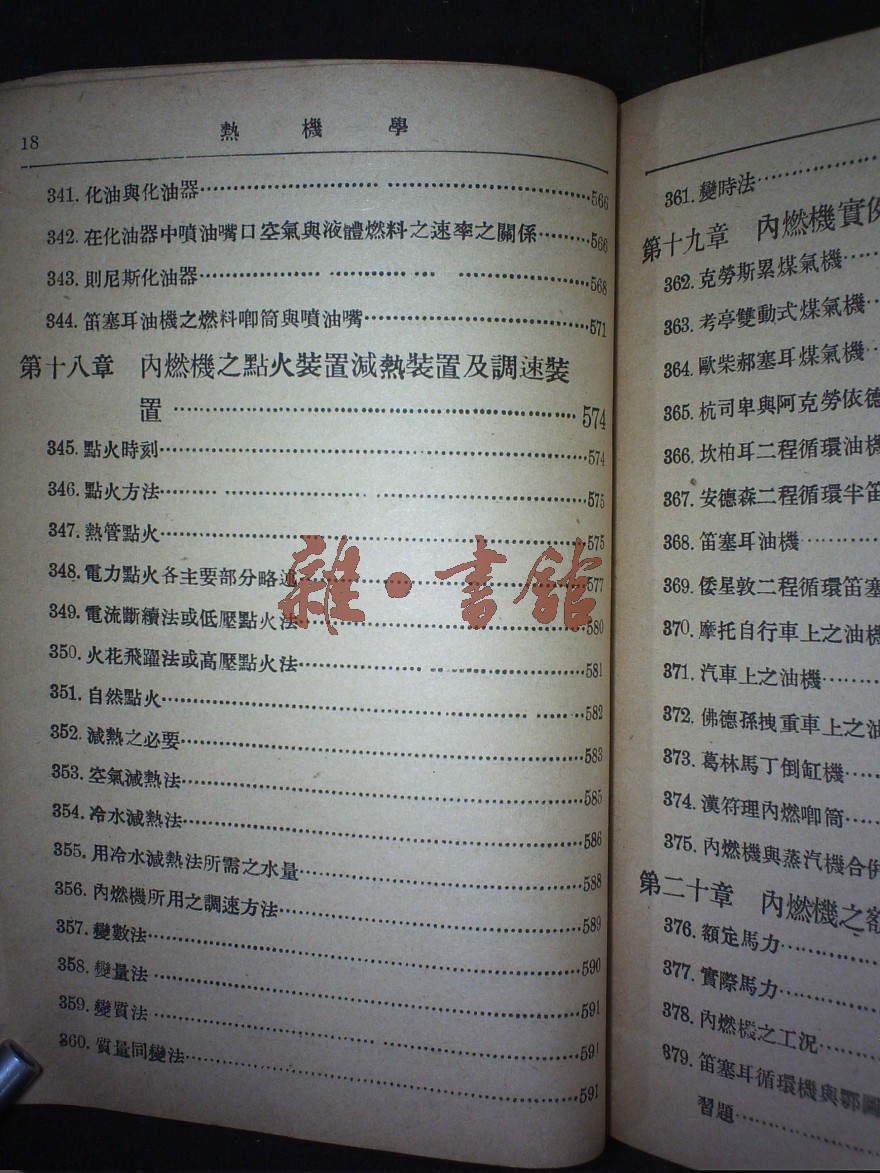 18
熱 機 學
341. 化油與化油器 566
342. 在化油器中噴油嘴口空氣與液體燃料之速率之關係 566
343. 則尼斯化油器 568
344. 笛塞耳油機之燃料唧筒與噴油嘴 571
第十八章 內燃機之點火裝置減熱裝置及調速裝
置 574
345. 點火時刻 574
346. 點火方法 575
347. 熱管點火 575
348. 電力點火各主要部分略述 577
349. 電流斷續法或低壓點火法 580
350. 火花飛躍法或高壓點火法 581
351. 自然點火 582
352. 減熱之必要 583
353. 空氣減熱法 585
354. 冷水減熱法 586
355. 用冷水減熱法所需之水量 588
356. 內燃機所用之調速方法 589
357. 變數法 590
358. 變量法 591
359. 變質法 591
360. 質量同變法 591
雜·書館
361. 變時法
第十九章 內燃機實例
362. 克勞斯累煤氣機
363. 考亭雙動式煤氣機
364. 歐柴郝塞耳煤氣機
365. 杭司卑與阿克勞依德
366. 坎柏耳二程循環油機
367. 安德森二程循環半笛
368. 笛塞耳油機
369. 倭星敦二程循環笛塞
370. 摩托自行車上之油機
371. 汽車上之油機
372. 佛德孫拽重車上之油
373. 葛林馬丁倒缸機
374. 漢符理內燃唧筒
375. 內燃機與蒸汽機合併
第二十章 內燃機之額
376. 額定馬力
377. 實際馬力
378. 內燃機之工況
379. 笛塞耳循環機與鄂圖
習題